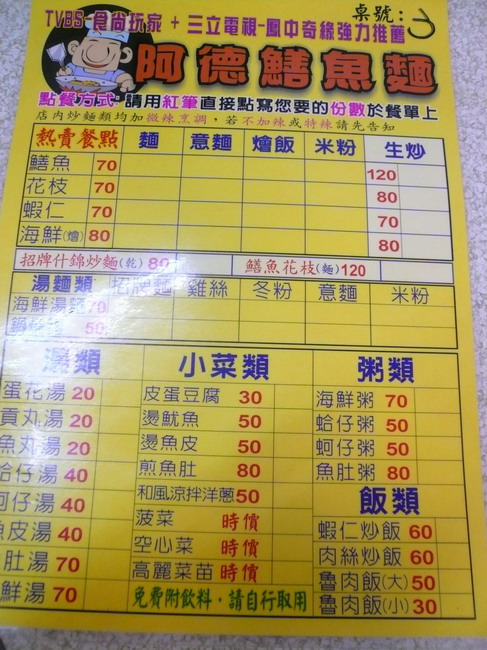 TVBS-食尚玩家 + 三立電視-鳳中奇緣強力推薦
桌號:
阿德鱔魚麵
點餐方式:請用紅筆直接點寫您要的份數於餐單上
店內炒麵類均加微辣烹調,若不加辣或特辣請先告知
熱賣餐點 麵 意麵 燴飯 米粉 生炒
鱔魚 70 120
花枝 70 80
蝦仁 70 70
海鮮(燴) 80 80
招牌什錦炒麵(乾) 80 鱔魚花枝(麵) 120
湯麵類 招牌麵 雞絲 冬粉 意麵 米粉
海鮮湯麵 70
50
湯類
蛋花湯 20
貢丸湯 20
魚丸湯 20
蛤仔湯 40
蚵仔湯 40
魚皮湯 40
肚湯 70
鮮湯 70
小菜類
皮蛋豆腐 30
燙魷魚 50
燙魚皮 50
煎魚肚 80
和風涼拌洋蔥 50
菠菜 時價
空心菜 時價
高麗菜苗 時價
免費附飲料,請自行取用
粥類
海鮮粥 70
蛤仔粥 50
蚵仔粥 50
魚肚粥 80
飯類
蝦仁炒飯 60
肉絲炒飯 60
魯肉飯(大) 50
魯肉飯(小) 30